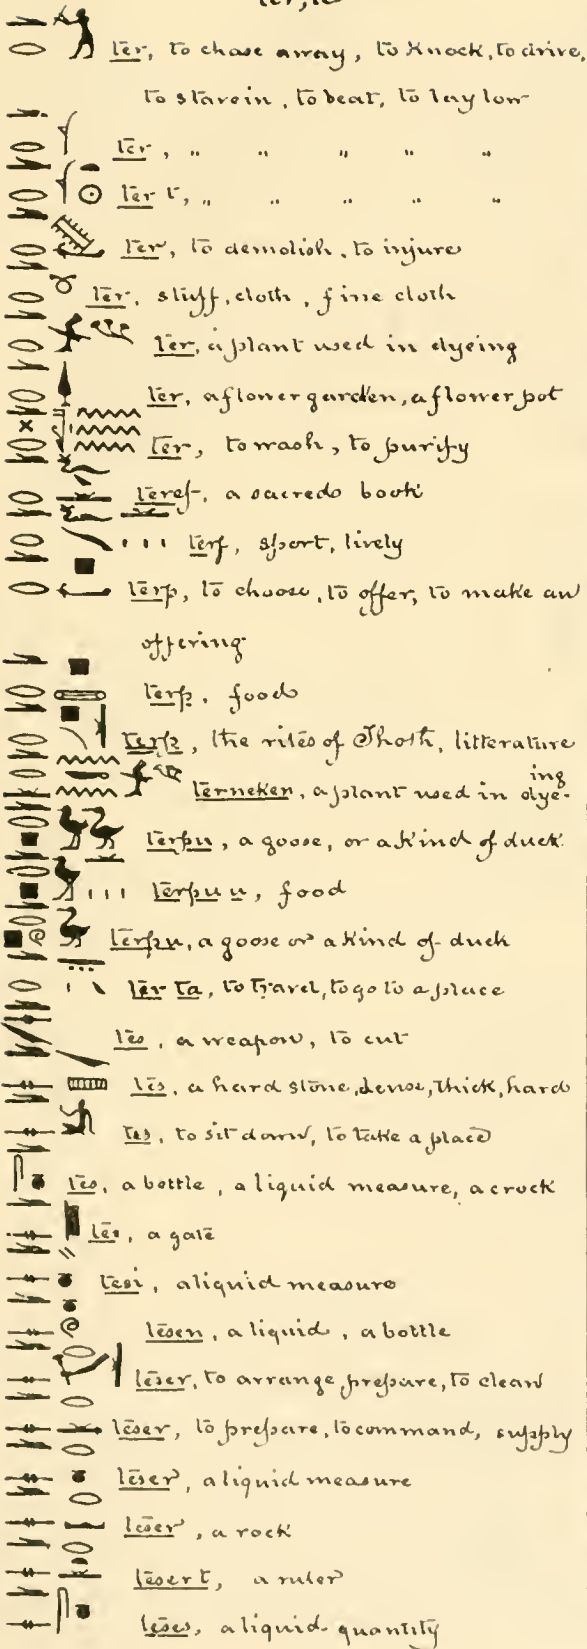 ter, te
ter, to chase away, to knock, to drive,
to starein, to beat, to lay low
ter, " " " " "
ter t, " " " " "
ter, to demolish, to injure
ter, stuff, cloth, fine cloth
ter, a plant used in dyeing
ter, a flower garden, a flower pot
ter, to wash, to purify
teref, a sacred book
terf, sport, lively
terp, to choose, to offer, to make an
offering
terp, food
terp, the rites of Thoth, litterature
terneken, a plant used in dyeing
terpu, a goose, or a kind of duck
terpuu, food
terpu, a goose or a kind of duck
ter ta, to travel, to go to a place
tes, a weapon, to cut
tes, a hard stone, dense, thick, hard
tes, to sit down, to take a place
tes, a bottle, a liquid measure, a crock
tes, a gate
tesi, a liquid measure
tesen, a liquid, a bottle
teser, to arrange, prepare, to clean
teser, to prepare, to command, supply
teser, a liquid measure
teser, a rock
teser t, a ruler
teses, a liquid quantity